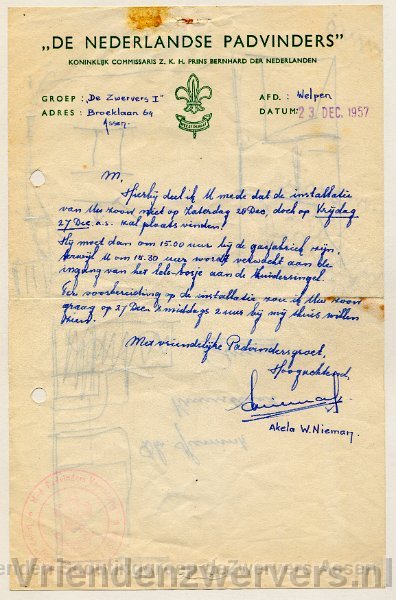 „DE NEDERLANDSE PADVINDERS"
KONINKLIJK COMMISSARIS Z. K. H. PRINS BERNHARD DER NEDERLANDEN
GROEP : „De Zwervers I"
AFD. : Welpen
ADRES : Broeklaan 64
Assen.
DATUM: 23 DEC. 1957
M,
Hierbij deel ik U mede dat de installatie
van Uw zoon niet op Zaterdag 28 Dec, doch op Vrijdag
27 Dec. a.s. zal plaats vinden!
Hij moet dan om 15.00 uur bij de gasfabriek zijn,
terwijl U om 18.30 uur wordt verwacht aan de
ingang van het bosje aan de Zuidersingel.
Ter voorbereiding op de installatie zou ik Uw zoon
graag op 27 Dec 's middags 2 uur bij mij thuis willen
Met vriendelijke Padvindersgroet,
Hoogachtend,
Akela W. Nieman.
Vriendenzwervers.nl